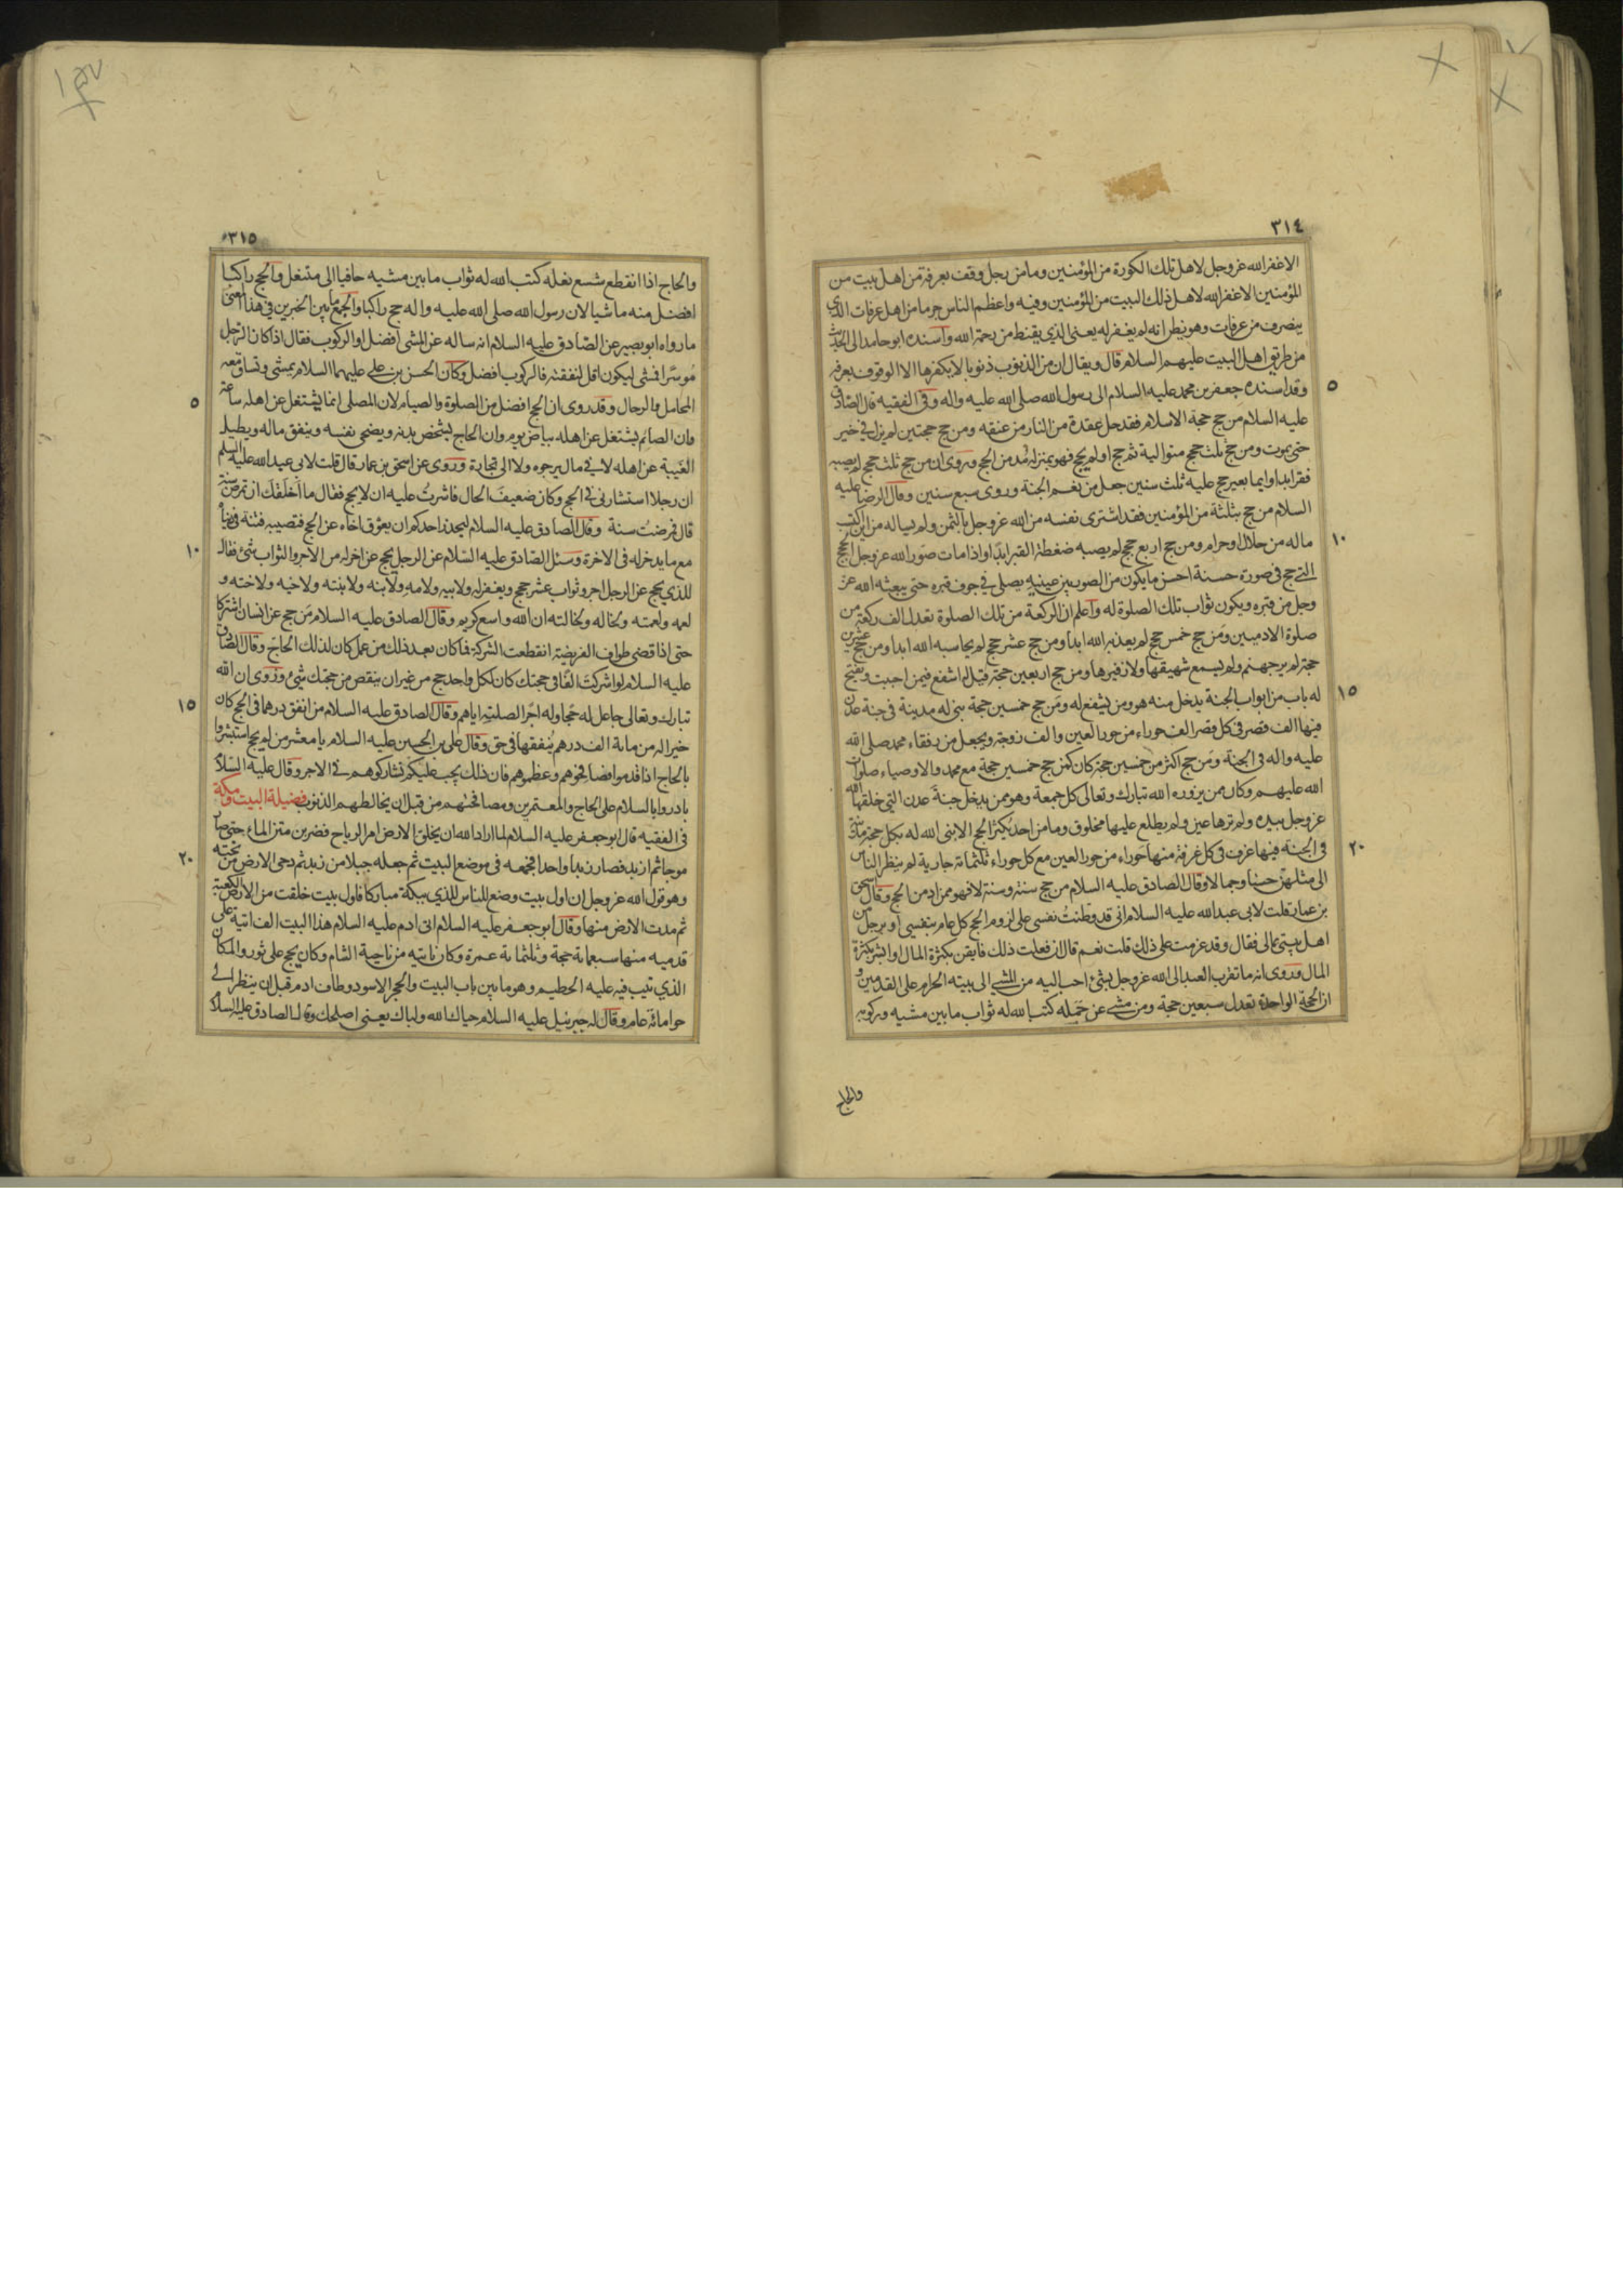 ٣١٤
الاغفر الله عز وجل لاهل تلك الكورة من المؤمنين وما من رجل وقف بعرفة من اهل بيت من
المؤمنين الا غفر الله لاهل ذلك البيت من المؤمنين وفيه واعظم الناس جرما من اهل عرفات الذي
ينصرف من عرفات وهو يظن انه لم يغفر له يعنى الذي يقنط من رحمة الله وأسنده ابو حامد الى الحديث
من طريق اهل البيت عليهم السلام قال ويقال ان من الذنوب ذنوبا لا يكفرها الا الوقوف بعرفة
وقد اسنده جعفر بن محمد عليه السلام الى رسول الله صلى الله عليه واله وفى الفقيه قال الصادق
٥
عليه السلام من حج حجة الاسلام فقد حل عقدة من النار من عنقه ومن حج حجتين لم يزل في خير
حتى يموت ومن حج ثلث حجج متوالية ثم حج او لم يحج فهو بمنزلة مدمن الحج وروى ان من حج ثلث حجج لم يصبه
فقر ابدا وايما بعير حج عليه ثلث سنين جعل من نعم الجنة وروى سبع سنين وقال الرضا عليه
السلام من حج بثلثة من المؤمنين فقد اشترى نفسه من الله عز وجل بالثمن ولم يساله من اين اكتسب
ماله من حلال او حرام ومن حج اربع حجج لم يصبه ضغطة القبر ابدا واذا مات صور الله عز وجل الحج
١٠
التي حج في صورة حسنة احسن ما يكون من الصور بين عينيه يصلى في جوف قبره حتى يبعثه الله عز
وجل من قبره ويكون ثواب تلك الصلوة له واعلم ان الركعة من تلك الصلوة تعدل الف ركعة من
صلوة الادميين ومن حج خمس حجج لم يعذبه الله ابدا ومن حج عشر حجج لم يحاسبه الله ابدا ومن حج عشرين
حجة لم ير جهنم ولم يسمع شهيقها ولا زفيرها ومن حج اربعين حجة قيل له اشفع فيمن احببت ويفتح
له باب من ابواب الجنة يدخل منه هو ومن يشفع له ومن حج خمسين حجة بنى له مدينة في جنة عدن
١٥
فيها الف قصر في كل قصر الف حوراء من حور العين والف زوجة ويجعل من رفقاء محمد صلى الله
عليه واله في الجنة ومن حج اكثر من خمسين حجة كان كمن حج خمسين حجة مع محمد والاوصياء صلوات
الله عليهم وكان ممن يزوره الله تبارك وتعالى كل جمعة وهو ممن يدخل جنة عدن التي خلقها الله
عز وجل بيده ولم ترها عين ولم يطلع عليها مخلوق وما من احد يكثر الحج الا بنى الله له بكل حجة مدينة
في الجنة فيها غرف في كل غرفة منها حوراء من حور العين مع كل حوراء ثلثمائة جارية لم ينظر الناس
٢٠
الى مثلهن حسنا وجمالا وقال الصادق عليه السلام من حج سنة وسنة لا فهو ممن ادمن الحج وقال اسحق
بن عمار قلت لابى عبد الله عليه السلام انى قد وطنت نفسى على لزوم الحج كل عام بنفسى او برجل من
اهل بيتى بمالى فقال وقد عزمت على ذلك قلت نعم قال ان فعلت ذلك فايقن بكثرة المال او ابشر بكثرة
المال وروى انه ما تقرب العبد الى الله عز وجل بشئ احب اليه من المشى الى بيته الحرام على القدمين و
ان الحجة الواحدة تعدل سبعين حجة ومن مشى عن جمله كتب الله له ثواب ما بين مشيه وركوبه
والحاج
٣١٥
والحاج اذا انقطع شسع نعله كتب الله له ثواب ما بين مشيه حافيا الى متنعل والحج راكبا
افضل منه ماشيا لان رسول الله صلى الله عليه واله حج راكبا والجمع بين الخبرين في هذا المعنى
ما رواه ابو بصير عن الصادق عليه السلام انه ساله عن المشى افضل او الركوب فقال اذا كان الرجل
موسرا فمشى ليكون اقل لنفقته فالركوب افضل وكان الحسن بن على عليهما السلام يمشى وتساق معه
المحامل والرحال وقد روى ان الحج افضل من الصلوة والصيام لان المصلى انما يشتغل عن اهله ساعة
٥
وان الصائم يشتغل عن اهله بياض يوم وان الحاج يشخص بدنه ويضحى نفسه وينفق ماله ويطيل
الغيبة عن اهله لا في مال يرجوه ولا الى تجارة وروى عن اسحق بن عمار قال قلت لابى عبد الله عليه السلم
ان رجلا استشارنى في الحج وكان ضعيف الحال فاشرت عليه ان لا يحج فقال ما اخلقك ان تمرض سنة
قال فمرضت سنة وقال الصادق عليه السلام ليحذر احدكم ان يعوق اخاه عن الحج فتصيبه فتنة في دنياه
مع ما يدخر له في الاخرة وسئل الصادق عليه السلام عن الرجل يحج عن اخر له من الاجر والثواب شئ فقال
١٠
للذى يحج عن الرجل اجر وثواب عشر حجج ويغفر له ولابيه ولامه ولابنه ولابنته ولاخيه ولاخته و
لعمه ولعمته ولخاله ولخالته ان الله واسع كريم وقال الصادق عليه السلام من حج عن انسان اشتركا
حتى اذا قضى طواف الفريضة انقطعت الشركة فما كان بعد ذلك من عمل كان لذلك الحاج وقال الصادق
عليه السلام لو اشركت الفا في حجتك كان لكل واحد حج من غير ان ينقص من حجتك شئ وروى ان الله
تبارك وتعالى جاعل له حجا وله اجر الصلته اياهم وقال الصادق عليه السلام من انفق درهما في الحج كان
١٥
خيرا له من مائة الف درهم ينفقها في حق وقال على بن الحسين عليه السلام يا معشر من لم يحج استبشروا
بالحاج اذا قدموا فصافحوهم وعظموهم فان ذلك يجب عليكم تشاركوهم في الاجر وقال عليه السلام
بادروا بالسلام على الحاج والمعتمرين ومصافحتهم من قبل ان يخالطهم الذنوب فضيلة البيت ومكة
في الفقيه قال ابو جعفر عليه السلام لما اراد الله ان يخلق الارض امر الرياح فضربن متن الماء حتى صار
موجا ثم ازبد فصار زبدا واحدا فجمعه في موضع البيت ثم جعله جبلا من زبد ثم دحى الارض من تحته
٢٠
وهو قول الله عز وجل ان اول بيت وضع للناس للذى ببكة مباركا فاول بيت خلقت من الارض الكعبة
ثم مدت الارض منها وقال ابو جعفر عليه السلام اتى ادم عليه السلام هذا البيت الف اتية على
قدميه منها سبعمائة حجة وثلثمائة عمرة وكان ياتيه من ناحية الشام وكان يحج على ثور والمكان
الذي تيب فيه عليه الحطيم وهو ما بين باب البيت والحجر الاسود وطاف ادم قبل ان ينظر الى
حوا مائة عام وقال له جبرئيل عليه السلام حياك الله ولباك يعنى اصلحك وقال الصادق عليه السلام